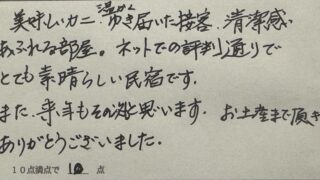 美味しいカニ、温かく
ゆき届いた接客、清潔感
あふれる部屋。ネットでの評判通りで
とても素晴らしい民宿です。
また、来年もその次と思います。お土産まで頂き
ありがとうございました。
10点満点で 10 点